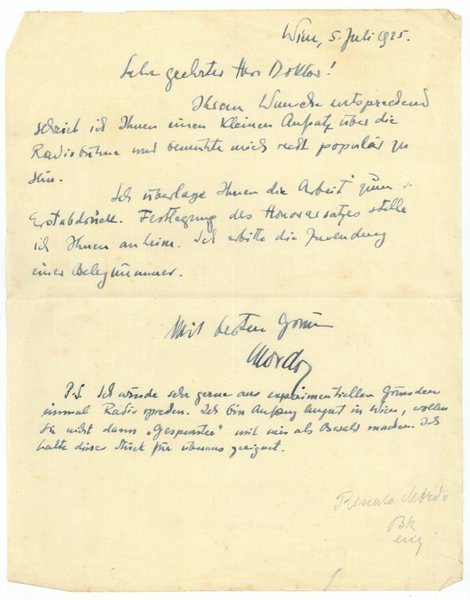 Wien, 5. Juli 1925.
Sehr geehrter Herr Doktor!
Ihrem Wunsche entsprechend
schrieb ich Ihnen einen kleinen Aufsatz über die
Radiobühne und bemühte mich recht populär zu
sein.
Ich überlasse Ihnen die Arbeit zum
Erstabdruck. Festlegung des Honorarsatzes stelle
ich Ihnen anheim. Ich erbitte die Zusendung
einer Belegnummer.
Mit besten Grüssen
Mordo
P.S. Ich würde sehr gerne aus experimentellen Gründen
einmal Radio sprechen. Ich bin Anfang August in Wien, wollen
Sie nicht dann „Gespenster" mit mir als Oswald machen. Ich
halte dieses Stück für überaus geeignet.
Renato Mordo